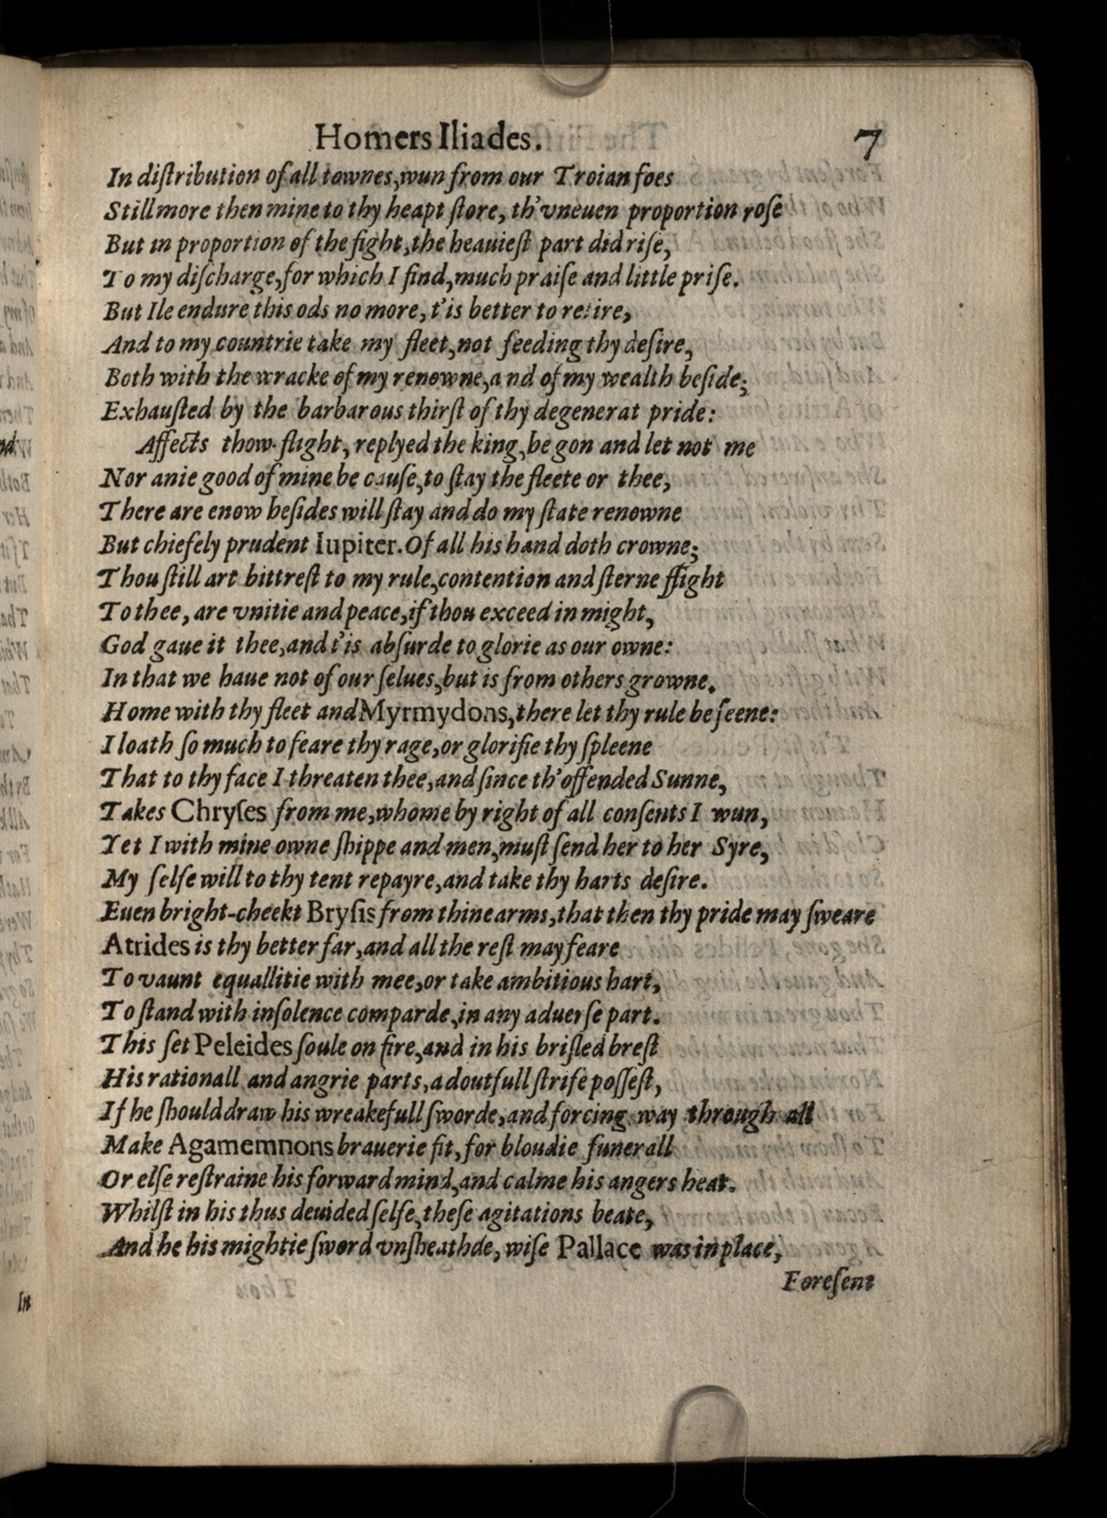 Homers Iliades. 7
In diſtribution of all townes, wun from our Troian foes
Still more then mine to thy heapt ſtore, th'vneuen proportion roſe
But in proportion of the fight, the heauieſt part did riſe,
To my diſcharge, for which I find, much praiſe and little priſe.
But Ile endure this ods no more, t'is better to retire,
And to my countrie take my fleet, not feeding thy deſire,
Both with the wracke of my renowne, and of my wealth beſide;
Exhauſted by the barbarous thirſt of thy degenerat pride:
Affects thow flight, replyed the king, be gon and let not me
Nor anie good of mine be cauſe, to ſtay the fleete or thee,
There are enow beſides will ſtay and do my ſtate renowne
But chiefely prudent Iupiter. Of all his hand doth crowne;
Thou ſtill art bittreſt to my rule, contention and ſterne ffight
To thee, are vnitie and peace, if thou exceed in might,
God gaue it thee, and t'is abſurde to glorie as our owne:
In that we haue not of our ſelues, but is from others growne.
Home with thy fleet and Myrmydons, there let thy rule be ſeene:
I loath ſo much to feare thy rage, or glorifie thy ſpleene
That to thy face I threaten thee, and ſince th'offended Sunne,
Takes Chryſes from me, whome by right of all conſents I wun,
Yet I with mine owne ſhippe and men, muſt ſend her to her Syre,
My ſelfe will to thy tent repayre, and take thy harts deſire.
Euen bright-cheekt Bryſis from thine arms, that then thy pride may ſweare
Atrides is thy better far, and all the reſt may feare
To vaunt equallitie with mee, or take ambitious hart,
To ſtand with inſolence comparde, in any aduerſe part.
This ſet Peleides ſoule on fire, and in his briſled breſt
His rationall and angrie parts, a doutfull ſtrife poſſeſt,
If he ſhould draw his wreakefull ſworde, and forcing way through all
Make Agamemnons brauerie fit, for bloudie funerall
Or elſe reſtraine his forward mind, and calme his angers heat.
Whilſt in his thus deuided ſelfe, theſe agitations beate,
And he his mightie ſword vnſheathde, wiſe Pallace was in place,
Foreſent
In